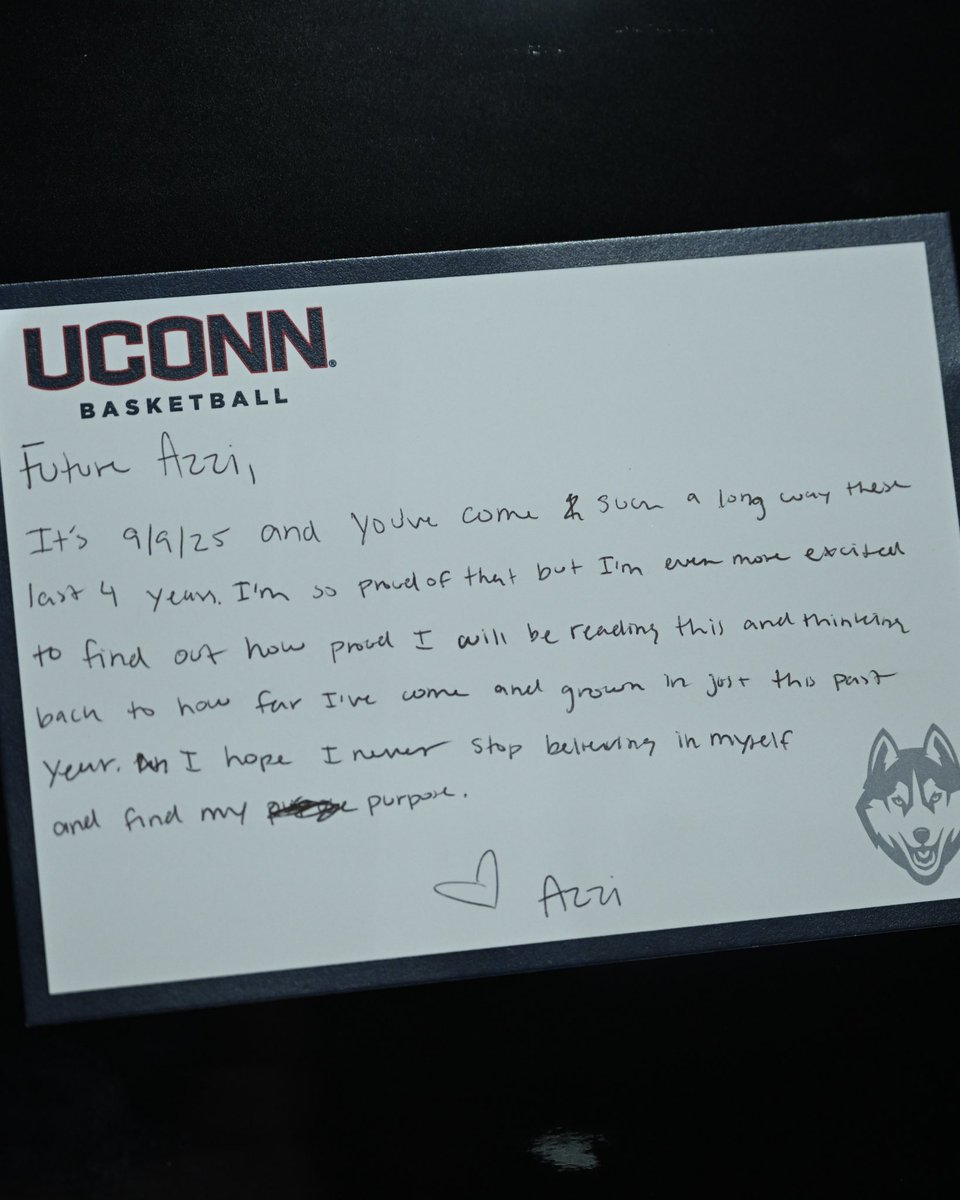 UCONN®
BASKETBALL
Future Azzi,
It's 9/9/25 and you've come such a long way these
last 4 years. I'm so proud of that but I'm even more excited
to find out how proud I will be reading this and thinking
back to how far I've come and grown in just this past
year. I hope I never stop believing in myself
and find my purpose.
Azzi